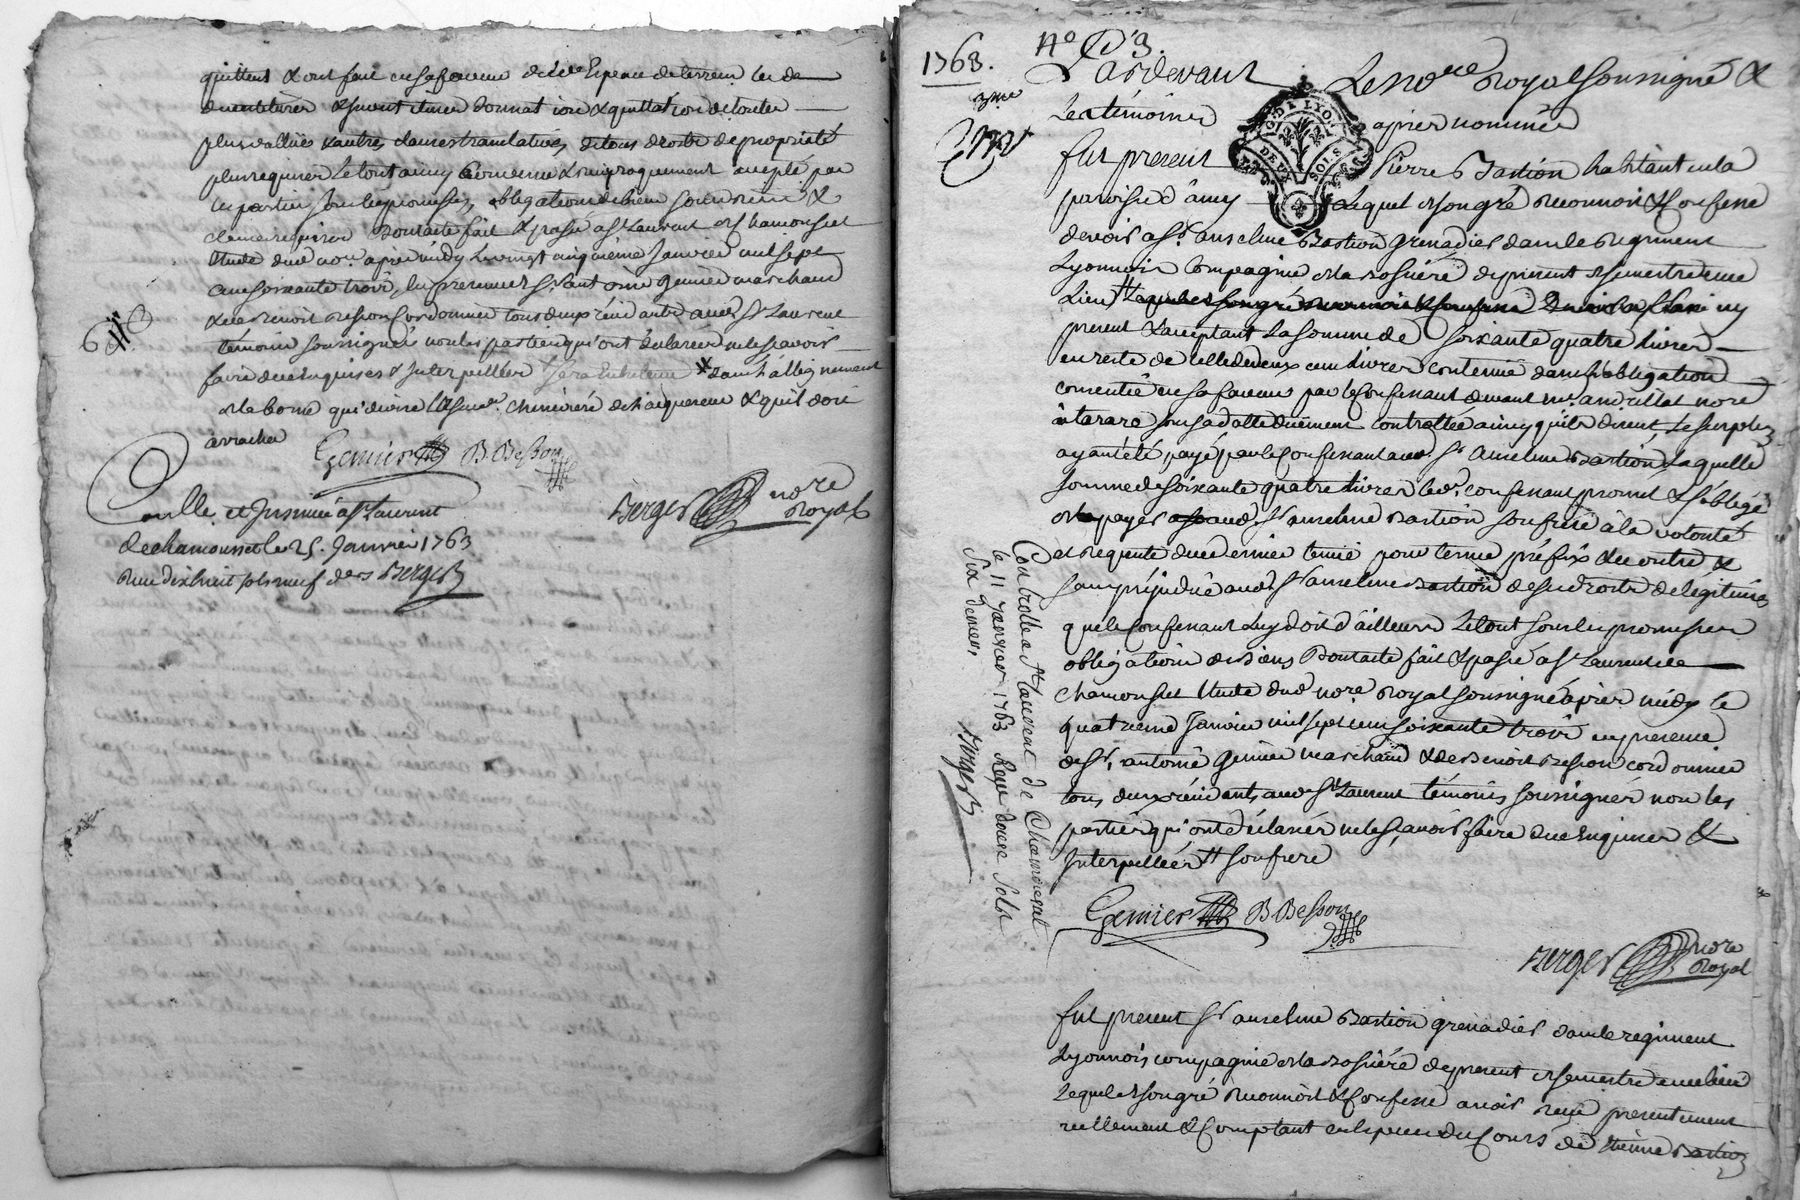 quittent & ont fait en sa faveur de telle espece de terrein les de
plus vallües & autres clauses translatives de tous droits de propriété
plus requises Le tout ainsy Convenu & reciproquement accepté par
les parties sous les promesses, obligation de biens soumission &
clauses requises Dont acte fait & passé a St Laurent de Chamousset
Etude dud nore après midy Le vingt cinquieme Janvier mil sept
cent soixante trois, En presence de Sr antoine Gennier marchand
& de Benoit Besson Cordonnier tous deux résidants aud St Laurent
témoins soussignés non les parties qui ont declarés ne le sçavoir
faire de ce enquises & Interpellées
de la borne qui divise
arracher
Genier B. Besson
Berger nore Royal
Conllé et Insinué a St Laurent
de chamousset le 25. Janvier 1763
Reçu dix huit sols neuf ders Berger
1763.
No D 3.
Pardevant Le Nore Royal soussigné &
Les témoins après nommés
fut present Pierre Bastion habitant en la
paroisse d'ancy Lequel de son gré reconnoit & Confesse
devoir a Sr anselme Bastion grenadier dans le Regiment
Lyonnois Compagnie de la Rosiere de present de semestre en ce
Lieu
present & acceptant La somme de soixante quatre livres
en reste de celle de deux cent livres contenüe dans l'obligation
consentie en sa faveur par le Confessant devant me. andrillat nore
a tarare sous sa datte duement controllée ainsy qu'ils disent, Le surplus
ayant été payé par le Confessant aud. Sr anselme Bastion Laquelle
somme de soixante quatre livres led. confessant promet & s'oblige
de payer aud. Sr anselme Bastion son frere à la volonté
et requete dud dernier
sans préjudice aud. Sr anselme Bastion de ses droits de légitimes
que le Confessant Luy doit d'ailleurs Le tout sous les promesses
obligation de Biens Dont acte fait & passé a St Laurent de
Chamousset Etude dud nore Royal soussigné après midy le
quatrieme Janvier mil sept cent soixante trois en presence
de Sr. antoine Genier marchand & de Benoit Besson cordonnier
tous deux résidants aud St Laurent témoins soussignés non les
parties qui ont déclarés ne le sçavoir faire de ce Enquises &
Interpellées # son frere
Genier B Besson
Berger nore Royal
Controllé a St Laurent de Chamousset
le 11 Janvier 1763 Reçu douze sols
six deniers
Berger
fut present Sr anselme Bastion grenadier dans le regiment
Lyonnois compagnie de la Rosiere de present de semestre en ce lieu
Lequel de son gré reconnoit & Confesse avoir reçu presentement
reellement & Comptant en especes du Cours de Etienne Bastion